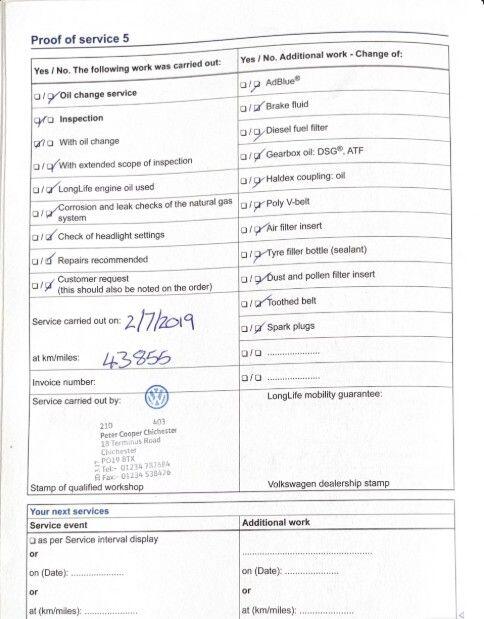 Proof of service 5
Yes / No. The following work was carried out:
□/□ Oil change service
□/□ Inspection
□/□ With oil change
□/□ With extended scope of inspection
□/□ LongLife engine oil used
□/□ Corrosion and leak checks of the natural gas
system
□/□ Check of headlight settings
□/□ Repairs recommended
□/□ Customer request
(this should also be noted on the order)
Service carried out on: 2/7/2019
at km/miles: 43855
Invoice number:
Service carried out by:
210 403
Peter Cooper Chichester
18 Terminus Road
Chichester
PO19 8TX
Tel:- 01234 787684
Fax:- 01234 538426
Stamp of qualified workshop
Yes / No. Additional work - Change of:
□/□ AdBlue®
□/□ Brake fluid
□/□ Diesel fuel filter
□/□ Gearbox oil: DSG®, ATF
□/□ Haldex coupling: oil
□/□ Poly V-belt
□/□ Air filter insert
□/□ Tyre filler bottle (sealant)
□/□ Dust and pollen filter insert
□/□ Toothed belt
□/□ Spark plugs
□/□ ....................
□/□ ....................
LongLife mobility guarantee:
Volkswagen dealership stamp
Your next services
Service event
□ as per Service interval display
or
on (Date): ....................
or
at (km/miles): ....................
Additional work
....................
on (Date): ....................
or
at (km/miles): ....................